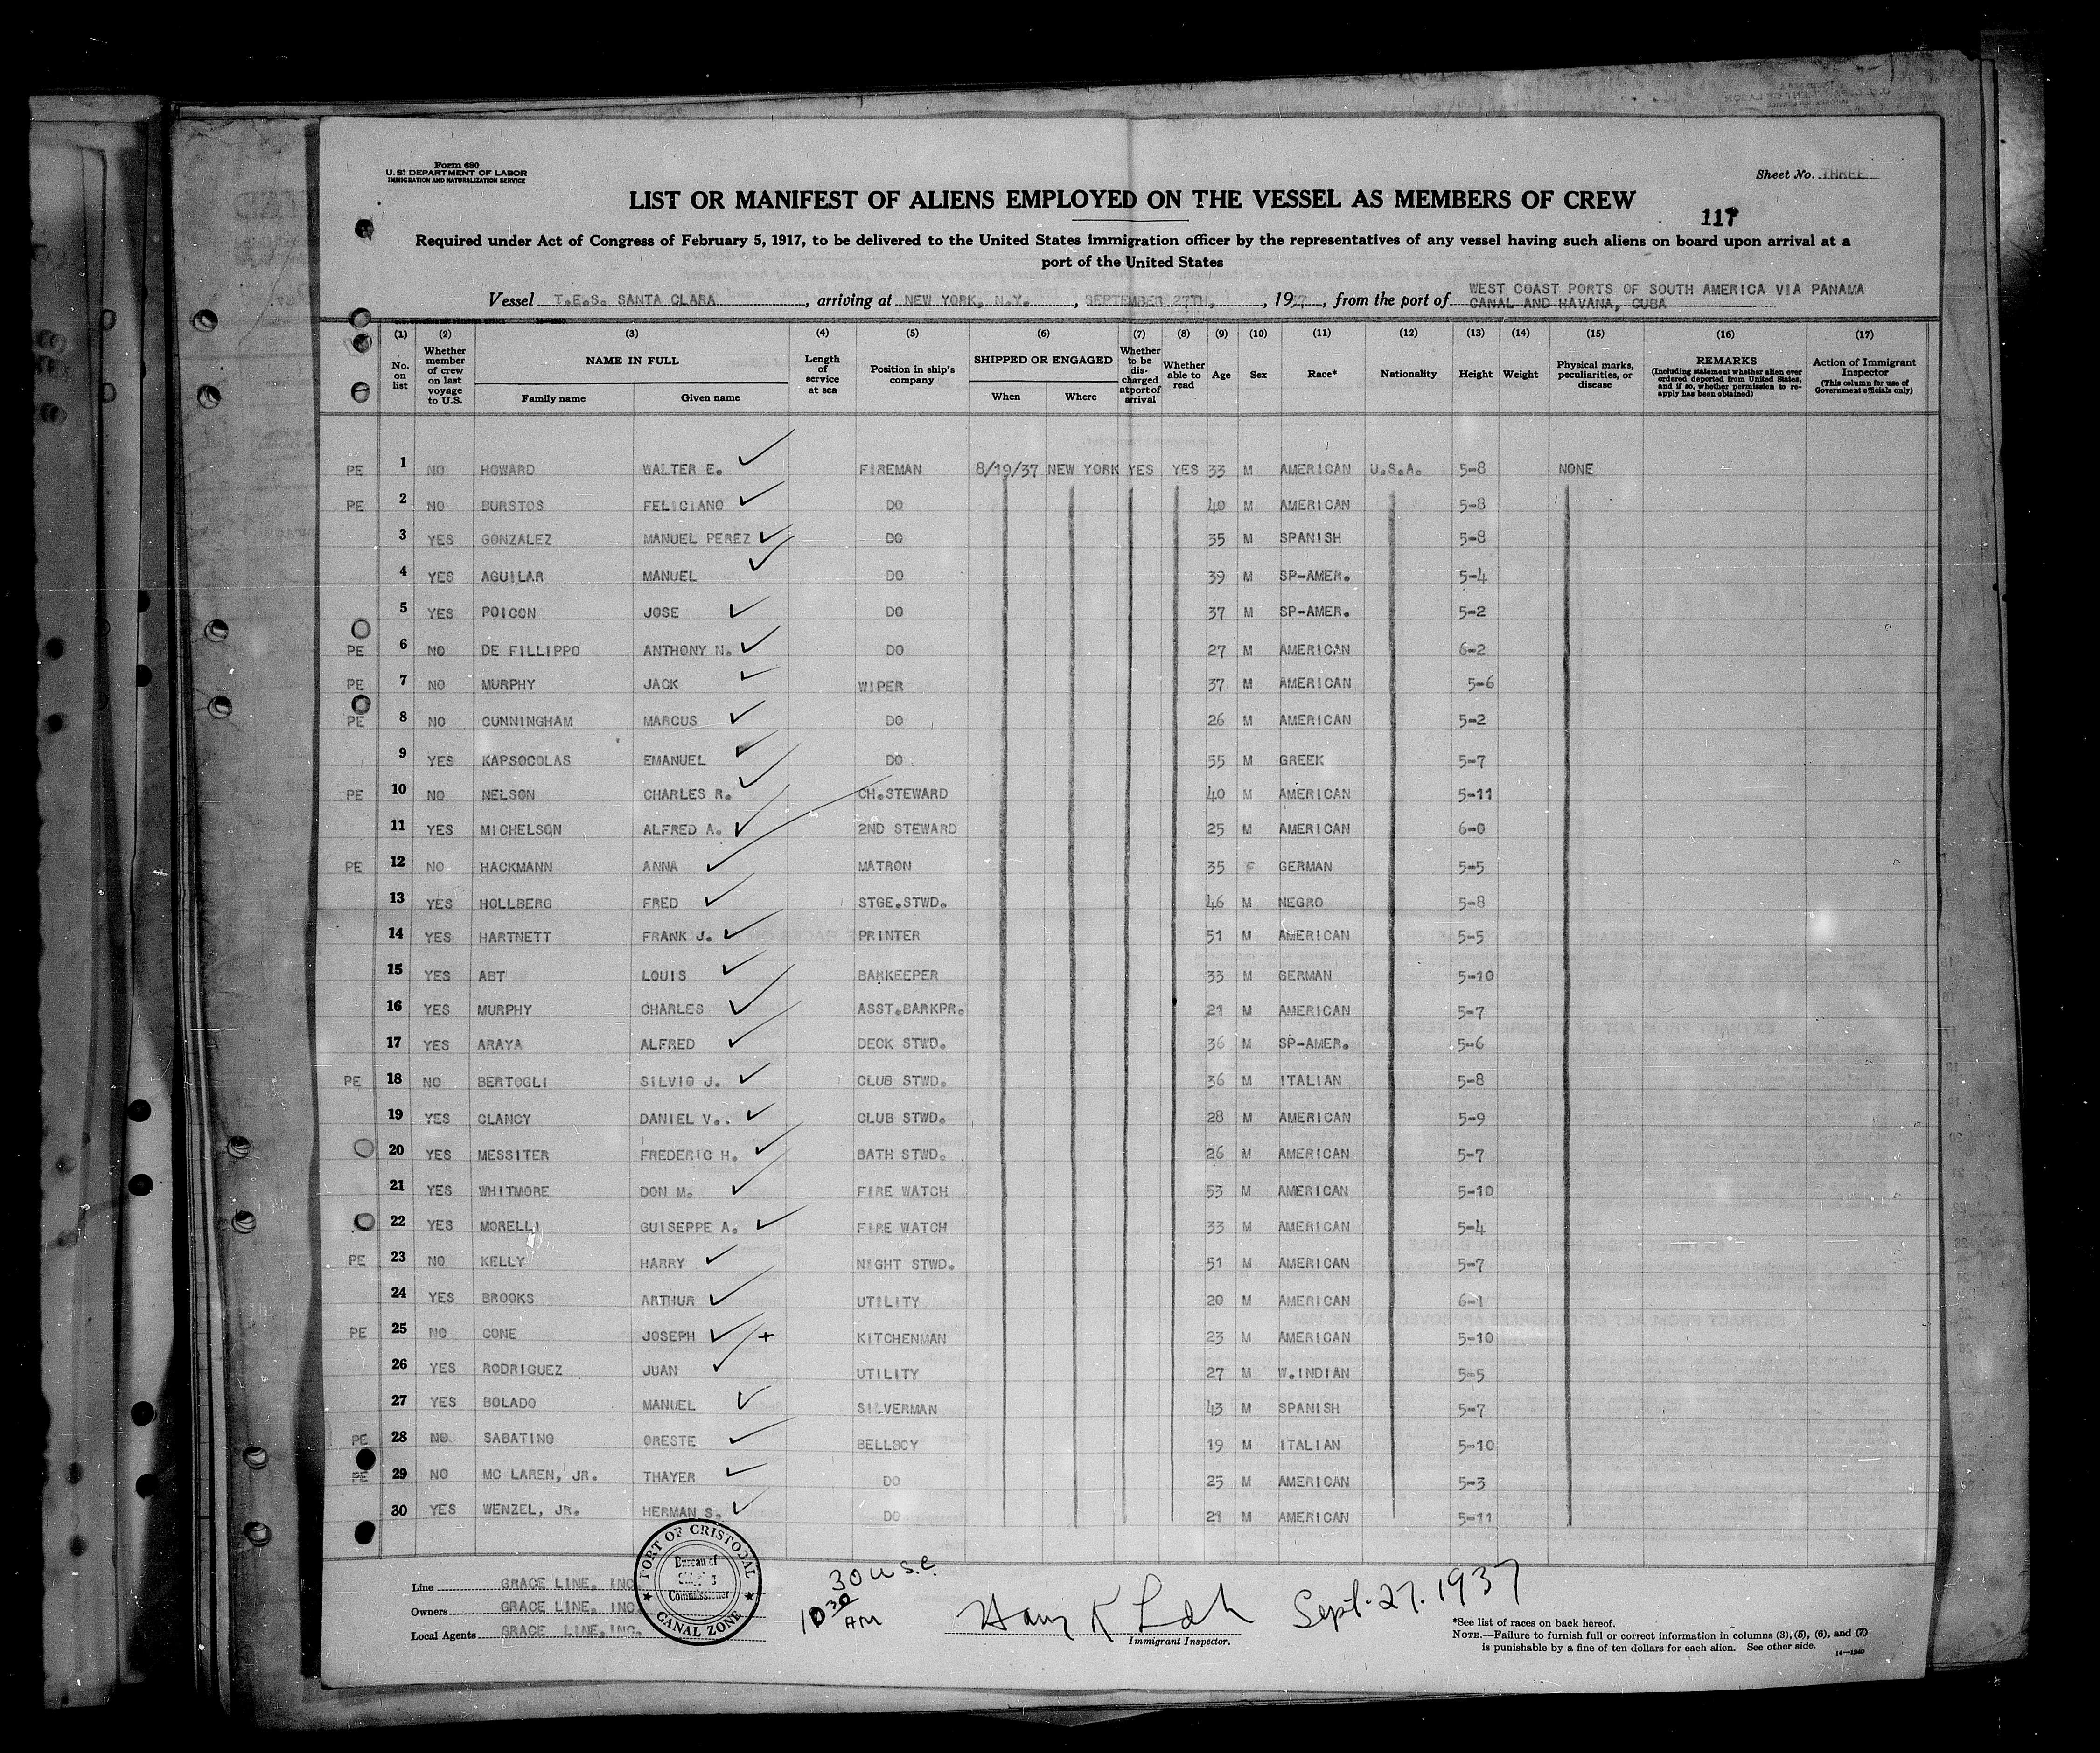 Form 680
U.S. DEPARTMENT OF LABOR
IMMIGRATION AND NATURALIZATION SERVICE
Sheet No. THREE
LIST OR MANIFEST OF ALIENS EMPLOYED ON THE VESSEL AS MEMBERS OF CREW
117
Required under Act of Congress of February 5, 1917, to be delivered to the United States immigration officer by the representatives of any vessel having such aliens on board upon arrival at a
port of the United States
Vessel T.E.S. SANTA CLARA, arriving at NEW YORK, N.Y., SEPTEMBER 27TH, 1937, from the port of WEST COAST PORTS OF SOUTH AMERICA VIA PANAMA
CANAL AND HAVANA, CUBA
(1) (2) (3) (4) (5) (6) (7) (8) (9) (10) (11) (12) (13) (14) (15) (16) (17)
No. on list
Whether member of crew on last voyage to U.S.
NAME IN FULL
Family name
Given name
Length of service at sea
Position in ship's company
SHIPPED OR ENGAGED
When
Where
Whether to be discharged at port of arrival
Whether able to read
Age
Sex
Race*
Nationality
Height
Weight
Physical marks, peculiarities, or disease
REMARKS
(Including statement whether alien ever ordered deported from United States, and if so, whether permission to reapply has been obtained)
Action of Immigrant Inspector
(This column for use of Government officials only)
PE 1 NO HOWARD WALTER E. FIREMAN 8/19/37 NEW YORK YES YES 33 M AMERICAN U.S.A. 5-8 NONE
PE 2 NO BURSTOS FELICIANO DO 40 M AMERICAN 5-8
3 YES GONZALEZ MANUEL PEREZ DO 35 M SPANISH 5-8
4 YES AGUILAR MANUEL DO 39 M SP-AMER. 5-4
5 YES POICON JOSE DO 37 M SP-AMER. 5-2
PE 6 NO DE FILLIPPO ANTHONY N. DO 27 M AMERICAN 6-2
PE 7 NO MURPHY JACK WIPER 37 M AMERICAN 5-6
PE 8 NO CUNNINGHAM MARCUS DO 26 M AMERICAN 5-2
9 YES KAPSOCOLAS EMANUEL DO 55 M GREEK 5-7
PE 10 NO NELSON CHARLES R. CH.STEWARD 40 M AMERICAN 5-11
11 YES MICHELSON ALFRED A. 2ND STEWARD 25 M AMERICAN 6-0
PE 12 NO HACKMANN ANNA MATRON 35 F GERMAN 5-5
13 YES HOLLBERG FRED STGE.STWD. 46 M NEGRO 5-8
14 YES HARTNETT FRANK J. PRINTER 51 M AMERICAN 5-5
15 YES ABT LOUIS BARKEEPER 33 M GERMAN 5-10
16 YES MURPHY CHARLES ASST.BARKPR. 21 M AMERICAN 5-7
17 YES ARAYA ALFRED DECK STWD. 36 M SP-AMER. 5-6
PE 18 NO BERTOGLI SILVIO J. CLUB STWD. 36 M ITALIAN 5-8
19 YES CLANCY DANIEL V.. CLUB STWD. 28 M AMERICAN 5-9
20 YES MESSITER FREDERIC H. BATH STWD. 26 M AMERICAN 5-7
21 YES WHITMORE DON M. FIRE WATCH 53 M AMERICAN 5-10
22 YES MORELLI GUISEPPE A. FIRE WATCH 33 M AMERICAN 5-4
PE 23 NO KELLY HARRY NIGHT STWD. 51 M AMERICAN 5-7
24 YES BROOKS ARTHUR UTILITY 20 M AMERICAN 6-1
PE 25 NO CONE JOSEPH + KITCHENMAN 23 M AMERICAN 5-10
26 YES RODRIGUEZ JUAN UTILITY 27 M W.INDIAN 5-5
27 YES BOLADO MANUEL SILVERMAN 43 M SPANISH 5-7
PE 28 NO SABATINO ORESTE BELLBOY 19 M ITALIAN 5-10
PE 29 NO MC LAREN, JR. THAYER DO 23 M AMERICAN 5-3
30 YES WENZEL, JR. HERMAN S. DO 21 M AMERICAN 5-11
Line GRACE LINE, INC.
Owners GRACE LINE, INC.
Local Agents GRACE LINE, INC.
PORT OF CRISTOBAL
Bureau of
Commissioner
CANAL ZONE
30 U.S.C.
10 30 AM
Sept. 27. 1937
Immigrant Inspector.
*See list of races on back hereof.
NOTE.—Failure to furnish full or correct information in columns (3), (5), (6), and (7)
is punishable by a fine of ten dollars for each alien. See other side.
14—1240